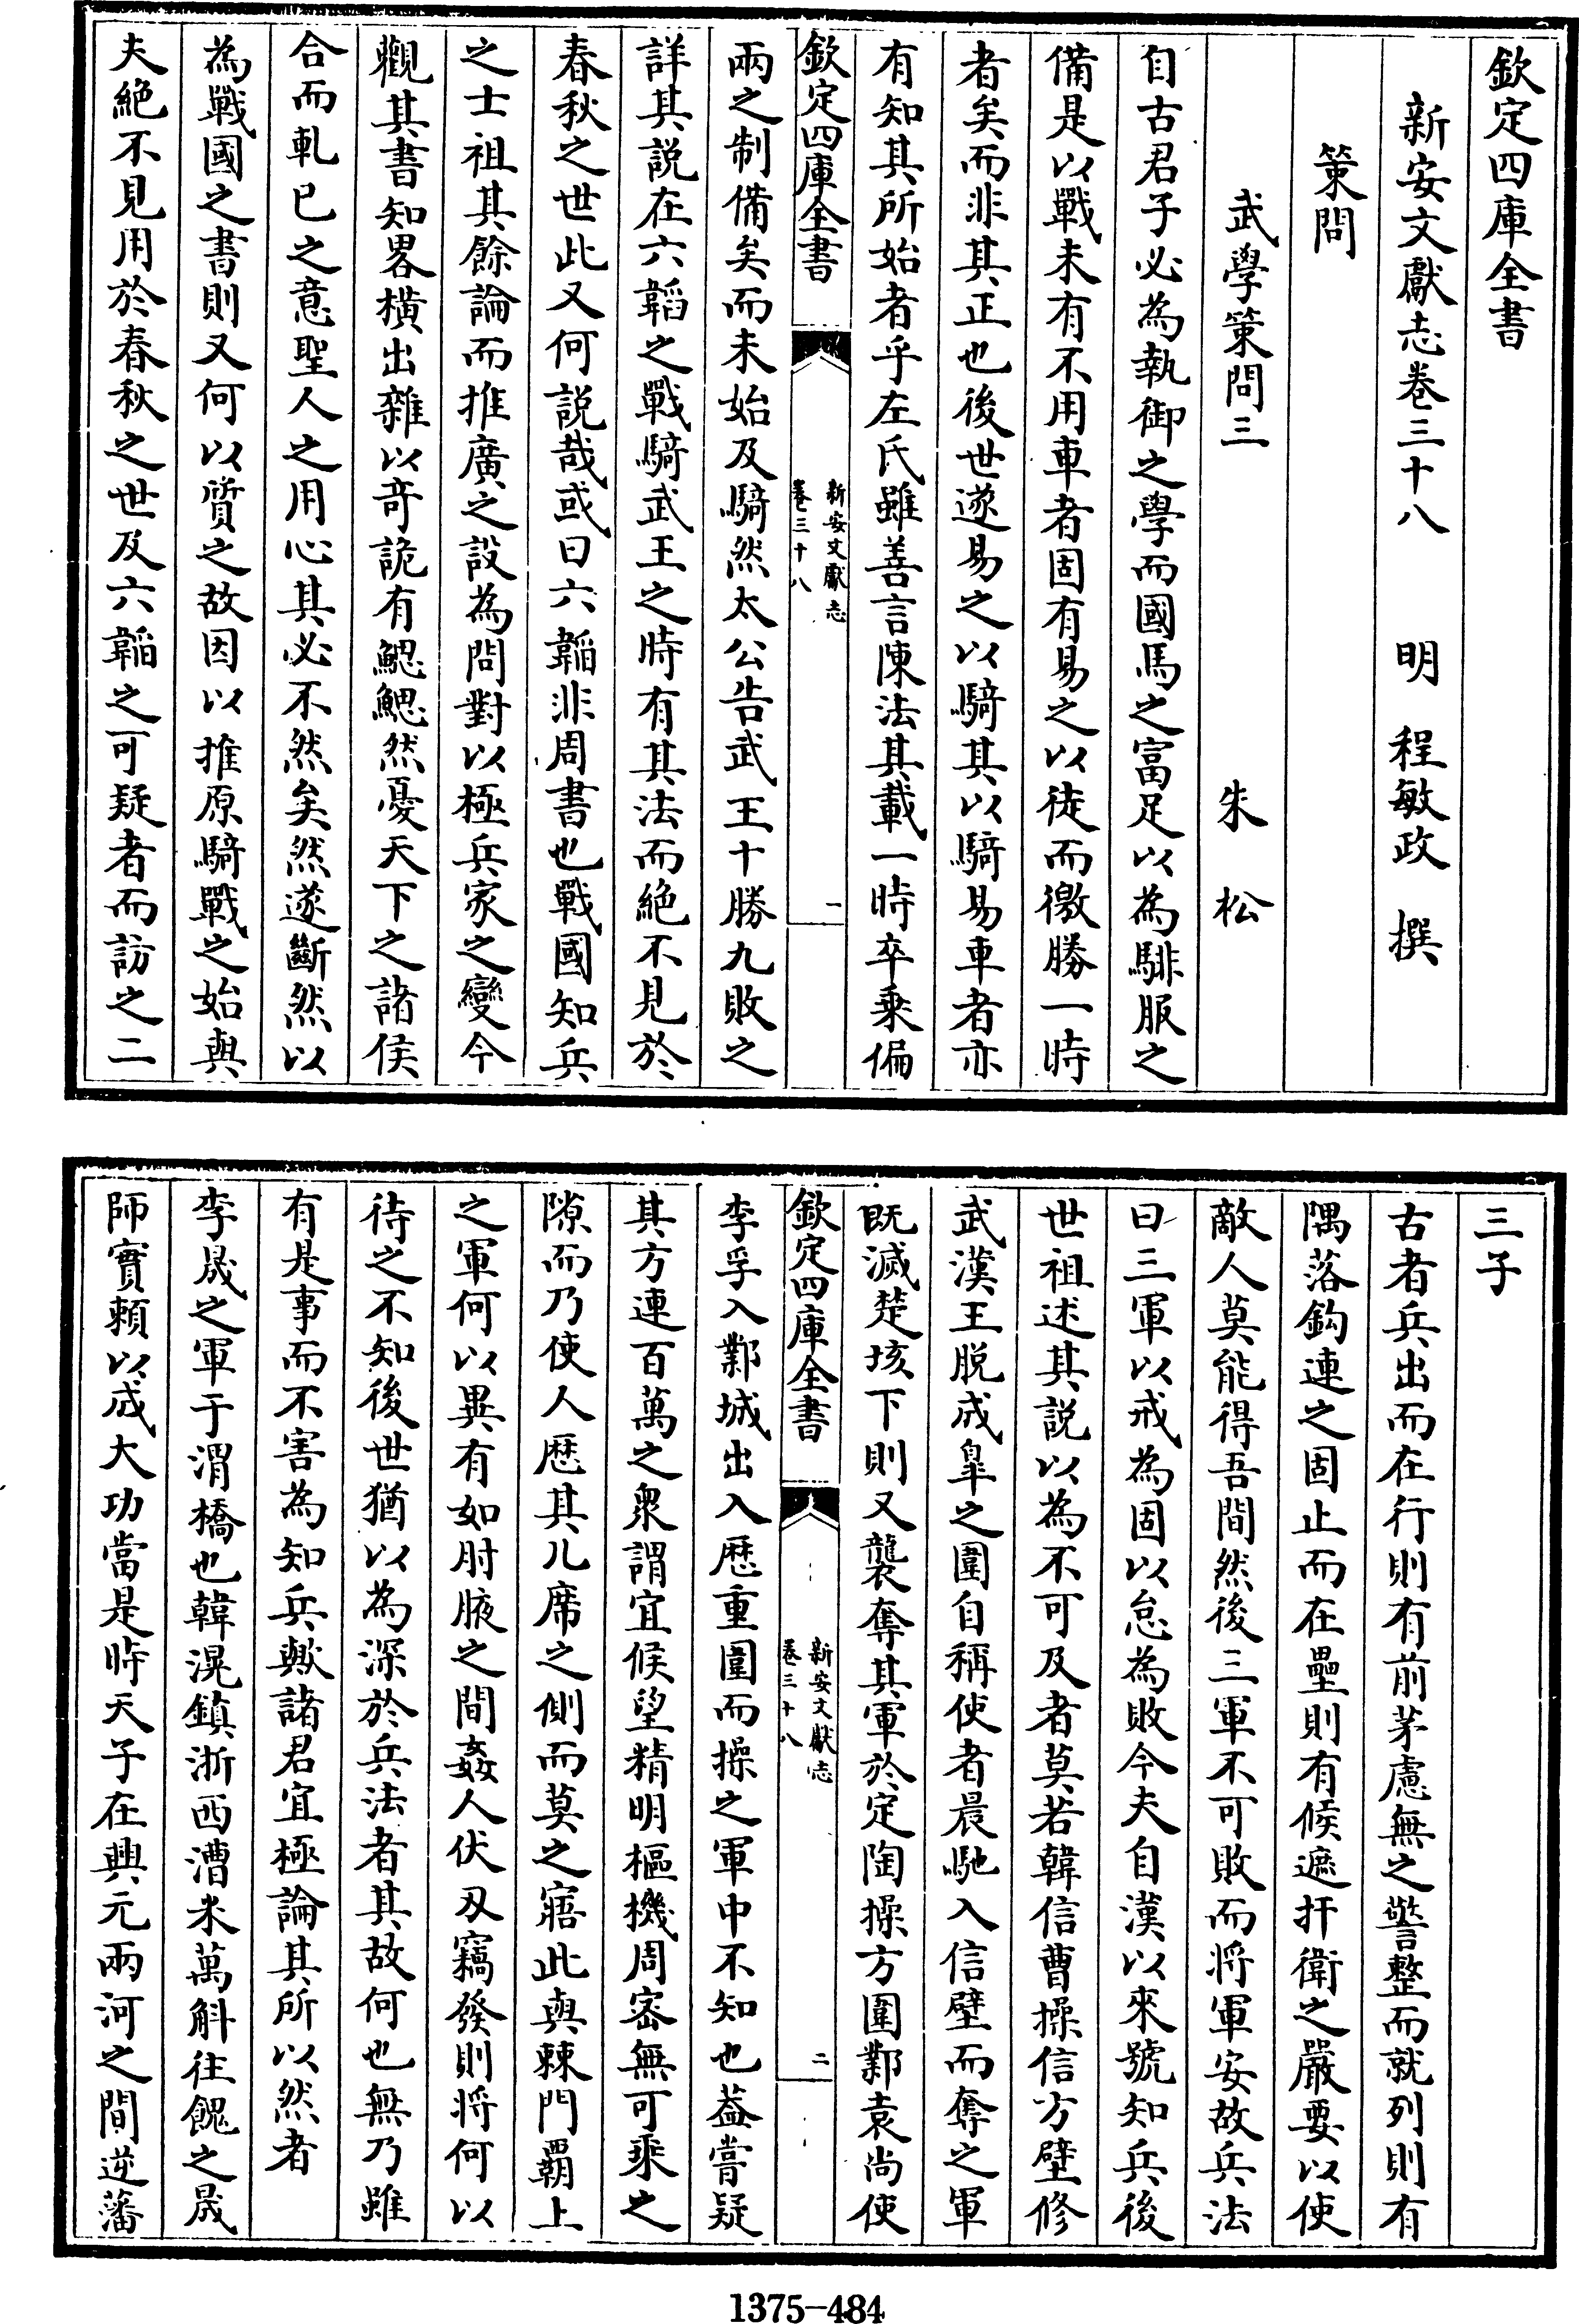 欽定四庫全書
新安文獻志卷三十八　明　程敏政　撰
策問
武學策問三　朱松
自古君子必為執御之學而國馬之富足以為騑服之
備是以戰未有不用車者固有易之以徒而徼勝一時
者矣而非其正也後世遂易之以騎其以騎易車者亦
有知其所始者乎左氏雖善言陳法其載一時卒乗偏
欽定四庫全書
新安文獻志
卷三十八
一
兩之制備矣而未始及騎然太公告武王十勝九敗之
詳其說在六韜之戰騎武王之時有其法而絶不見於
春秋之世此又何說哉或曰六韜非周書也戰國知兵
之士祖其餘論而推廣之設為問對以極兵家之變今
觀其書知畧橫出雜以竒詭有鰓鰓然憂天下之諸侯
合而軋已之意聖人之用心其必不然矣然遂斷然以
為戰國之書則又何以質之故因以推原騎戰之始與
夫絶不見用於春秋之世及六韜之可疑者而訪之二
三子
古者兵出而在行則有前茅慮無之警整而就列則有
隅落鈎連之固止而在壘則有候遮扞衛之嚴要以使
敵人莫能得吾間然後三軍不可敗而將軍安故兵法
曰三軍以戒為固以怠為敗今夫自漢以來號知兵後
世祖述其說以為不可及者莫若韓信曹操信方壁修
武漢王脱成臯之圍自稱使者晨馳入信壁而奪之軍
既滅楚垓下則又襲奪其軍於定陶操方圍鄴袁尚使
欽定四庫全書
新安文獻志
卷三十八
二
李孚入鄴城出入歴重圍而操之軍中不知也葢嘗疑
其方連百萬之衆謂宜候望精明樞機周宻無可乘之
隙而乃使人歴其几席之側而莫之寤此與棘門覇上
之軍何以異有如肘腋之間姦人伏刃竊發則將何以
待之不知後世猶以為深於兵法者其故何也無乃雖
有是事而不害為知兵歟諸君宜極論其所以然者
李晟之軍于渭橋也韓滉鎮浙西漕米萬斛往餽之晟
師實頼以成大功當是時天子在興元兩河之間逆藩
1375-484